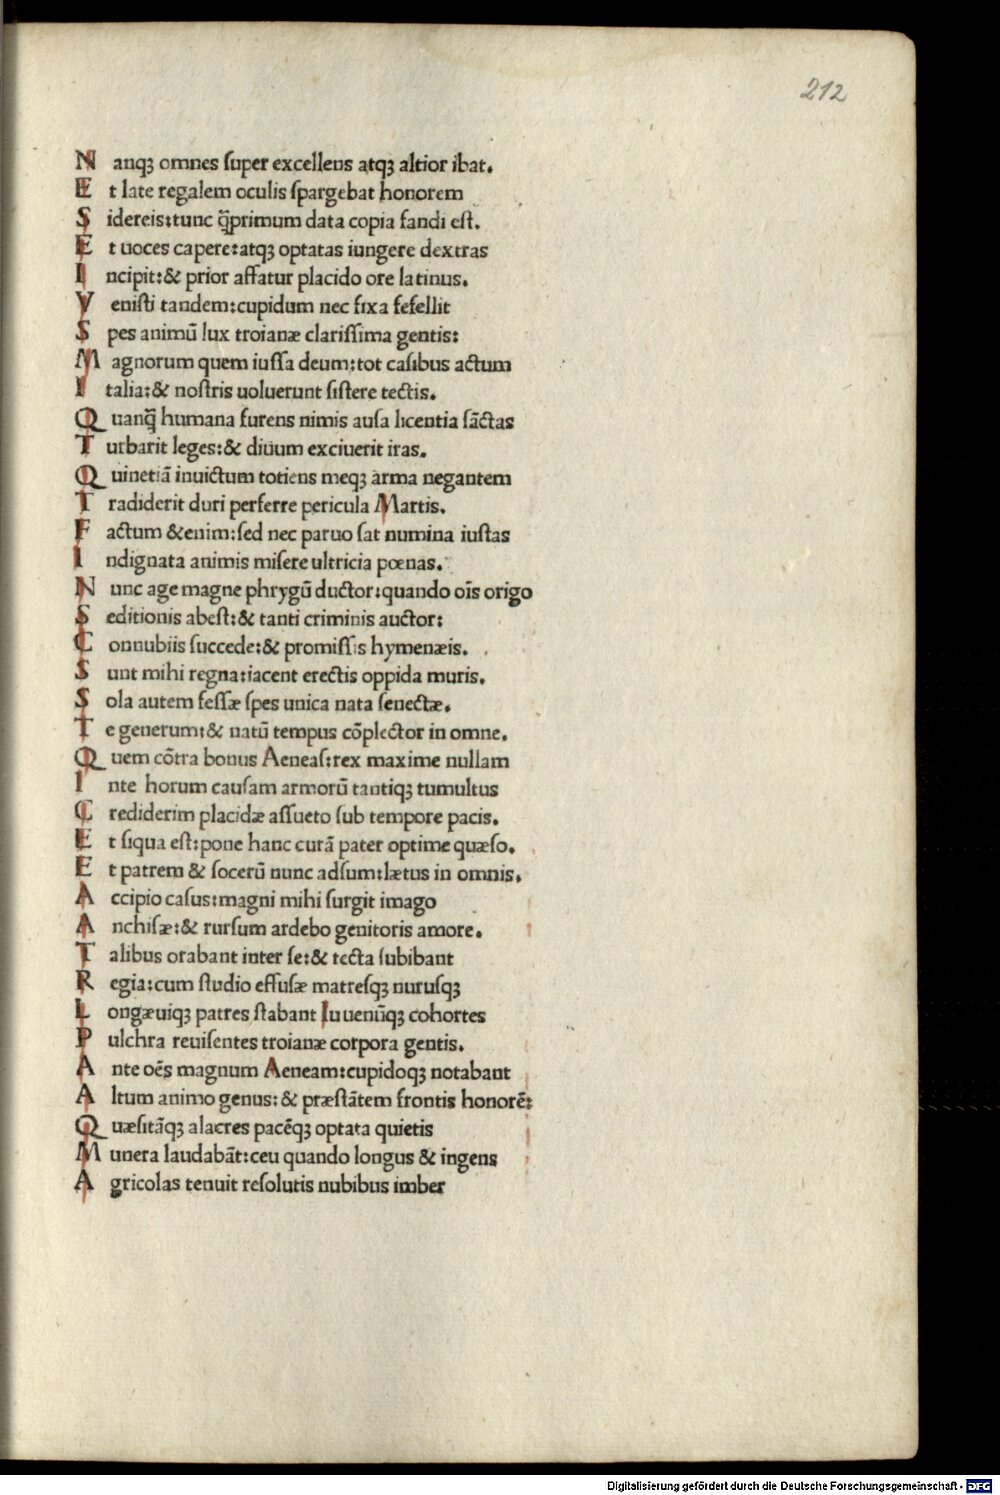 212
N anqꝫ omnes ſuper excellens atqꝫ altior ibat.
E t late regalem oculis ſpargebat honorem
S idereis:tunc q̄primum data copia fandi eſt.
E t uoces capere:atqꝫ optatas iungere dextras
I ncipit:& prior affatur placido ore latinus.
V eniſti tandem:cupidum nec fixa fefellit
S pes animū lux troianæ clariſſima gentis:
M agnorum quem iuſſa deum:tot caſibus actum
I talia:& noſtris uoluerunt ſiſtere tectis.
Q uanq̄ humana furens nimis auſa licentia ſāctas
T urbarit leges:& diuum exciuerit iras.
Q uinetiā inuictum totiens meqꝫ arma negantem
T radiderit duri perferre pericula Martis.
F actum &enim:ſed nec paruo ſat numina iuſtas
I ndignata animis miſere ultricia pœnas.
N unc age magne phrygū ductor:quando oīs origo
S editionis abeſt:& tanti criminis auctor:
C onnubiis ſuccede:& promiſſis hymenæis.
S unt mihi regna:iacent erectis oppida muris.
S ola autem feſſæ ſpes unica nata ſenectæ.
T e generum:& natū tempus cōplector in omne.
Q uem cōtra bonus Aeneaſ:rex maxime nullam
I nte horum cauſam armorū tantiqꝫ tumultus
C rediderim placidæ aſſueto ſub tempore pacis.
E t ſiqua eſt:pone hanc curā pater optime quæſo.
E t patrem & ſocerū nunc adſum:lætus in omnis.
A ccipio caſus:magni mihi ſurgit imago
A nchiſæ:& rurſum ardebo genitoris amore.
T alibus orabant inter ſe:& tecta ſubibant
R egia:cum ſtudio effuſæ matreſqꝫ nuruſqꝫ
L ongæuiqꝫ patres ſtabant Iuuenūqꝫ cohortes
P ulchra reuiſentes troianæ corpora gentis.
A nte oēs magnum Aeneam:cupidoqꝫ notabant
A ltum animo genus:& præſtātem frontis honorē:
Q uæſitāqꝫ alacres pacēqꝫ optata quietis
M unera laudabāt:ceu quando longus & ingens
A gricolas tenuit reſolutis nubibus imber
Digitalisierung gefördert durch die Deutsche Forschungsgemeinschaft - DFG